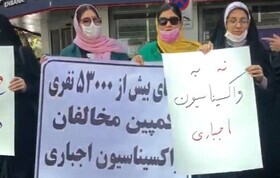 ی بیش از ۵۳۰۰۰ نفری
کمپین مخالفان
واکسیناسیون اجباری
نه به
واکسیناسیون
اجباری